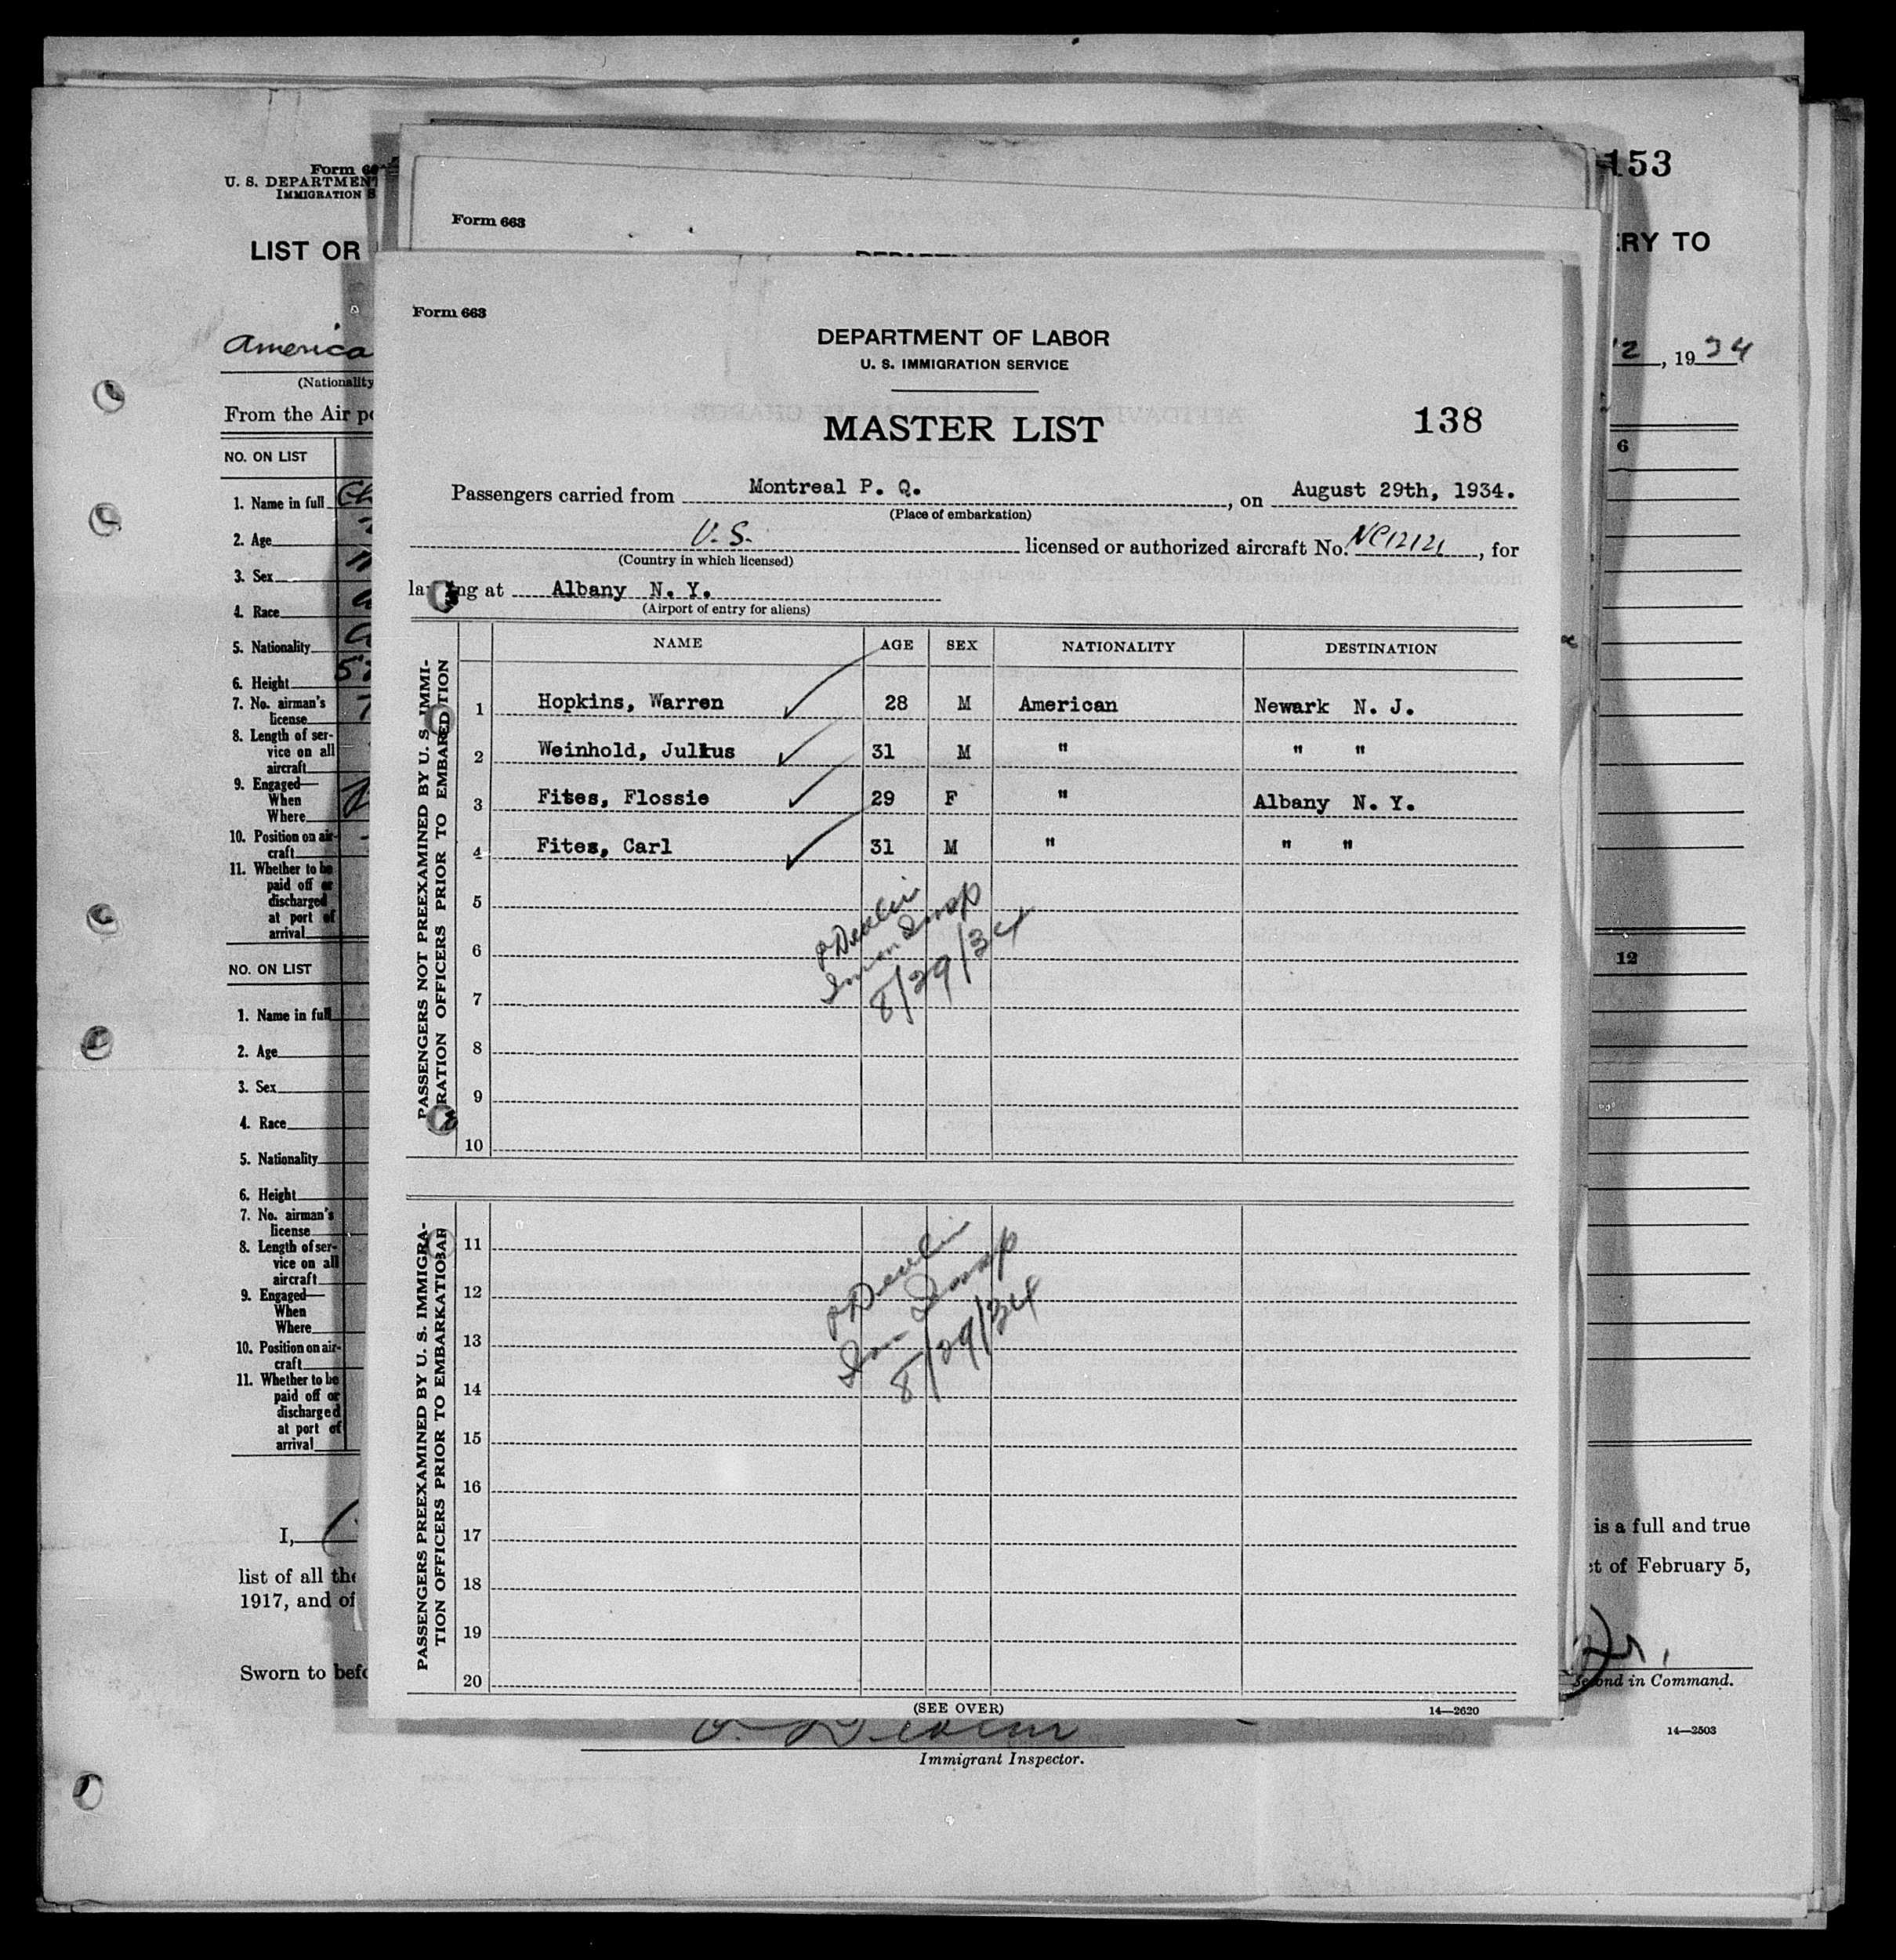 153
Form 66
U. S. DEPARTMENT
IMMIGRATION S
LIST OR
RY TO
America
(Nationality
, 1934
From the Air po
NO. ON LIST
6
1. Name in full
2. Age
3. Sex
4. Race
5. Nationality
6. Height
7. No. airman's
license
8. Length of ser-
vice on all
aircraft
9. Engaged—
When
Where
10. Position on air-
craft
11. Whether to be
paid off or
discharged
at port of
arrival
NO. ON LIST
12
1. Name in full
2. Age
3. Sex
4. Race
5. Nationality
6. Height
7. No. airman's
license
8. Length of ser-
vice on all
aircraft
9. Engaged—
When
Where
10. Position on air-
craft
11. Whether to be
paid off or
discharged
at port of
arrival
I,
is a full and true
list of all the
ct of February 5,
1917, and of
Sworn to befo
Second in Command.
14—2503
Immigrant Inspector.
Form 663
Form 663
DEPARTMENT OF LABOR
U. S. IMMIGRATION SERVICE
MASTER LIST
138
Passengers carried from Montreal P. Q. , on August 29th, 1934.
(Place of embarkation)
U. S. licensed or authorized aircraft No. NC12121 , for
(Country in which licensed)
landing at Albany N. Y.
(Airport of entry for aliens)
NAME AGE SEX NATIONALITY DESTINATION
PASSENGERS NOT PREEXAMINED BY U. S. IMMI-
GRATION OFFICERS PRIOR TO EMBARKATION
1 Hopkins, Warren 28 M American Newark N. J.
2 Weinhold, Julius 31 M " " "
3 Fites, Flossie 29 F " Albany N. Y.
4 Fites, Carl 31 M " " "
5
6
7
8
9
10
O Devlin
Imm Insp
8/29/34
PASSENGERS PREEXAMINED BY U. S. IMMIGRA-
TION OFFICERS PRIOR TO EMBARKATION
11
12
13
14
15
16
17
18
19
20
O Devlin
Imm Insp
8/29/34
(SEE OVER)
14—2620